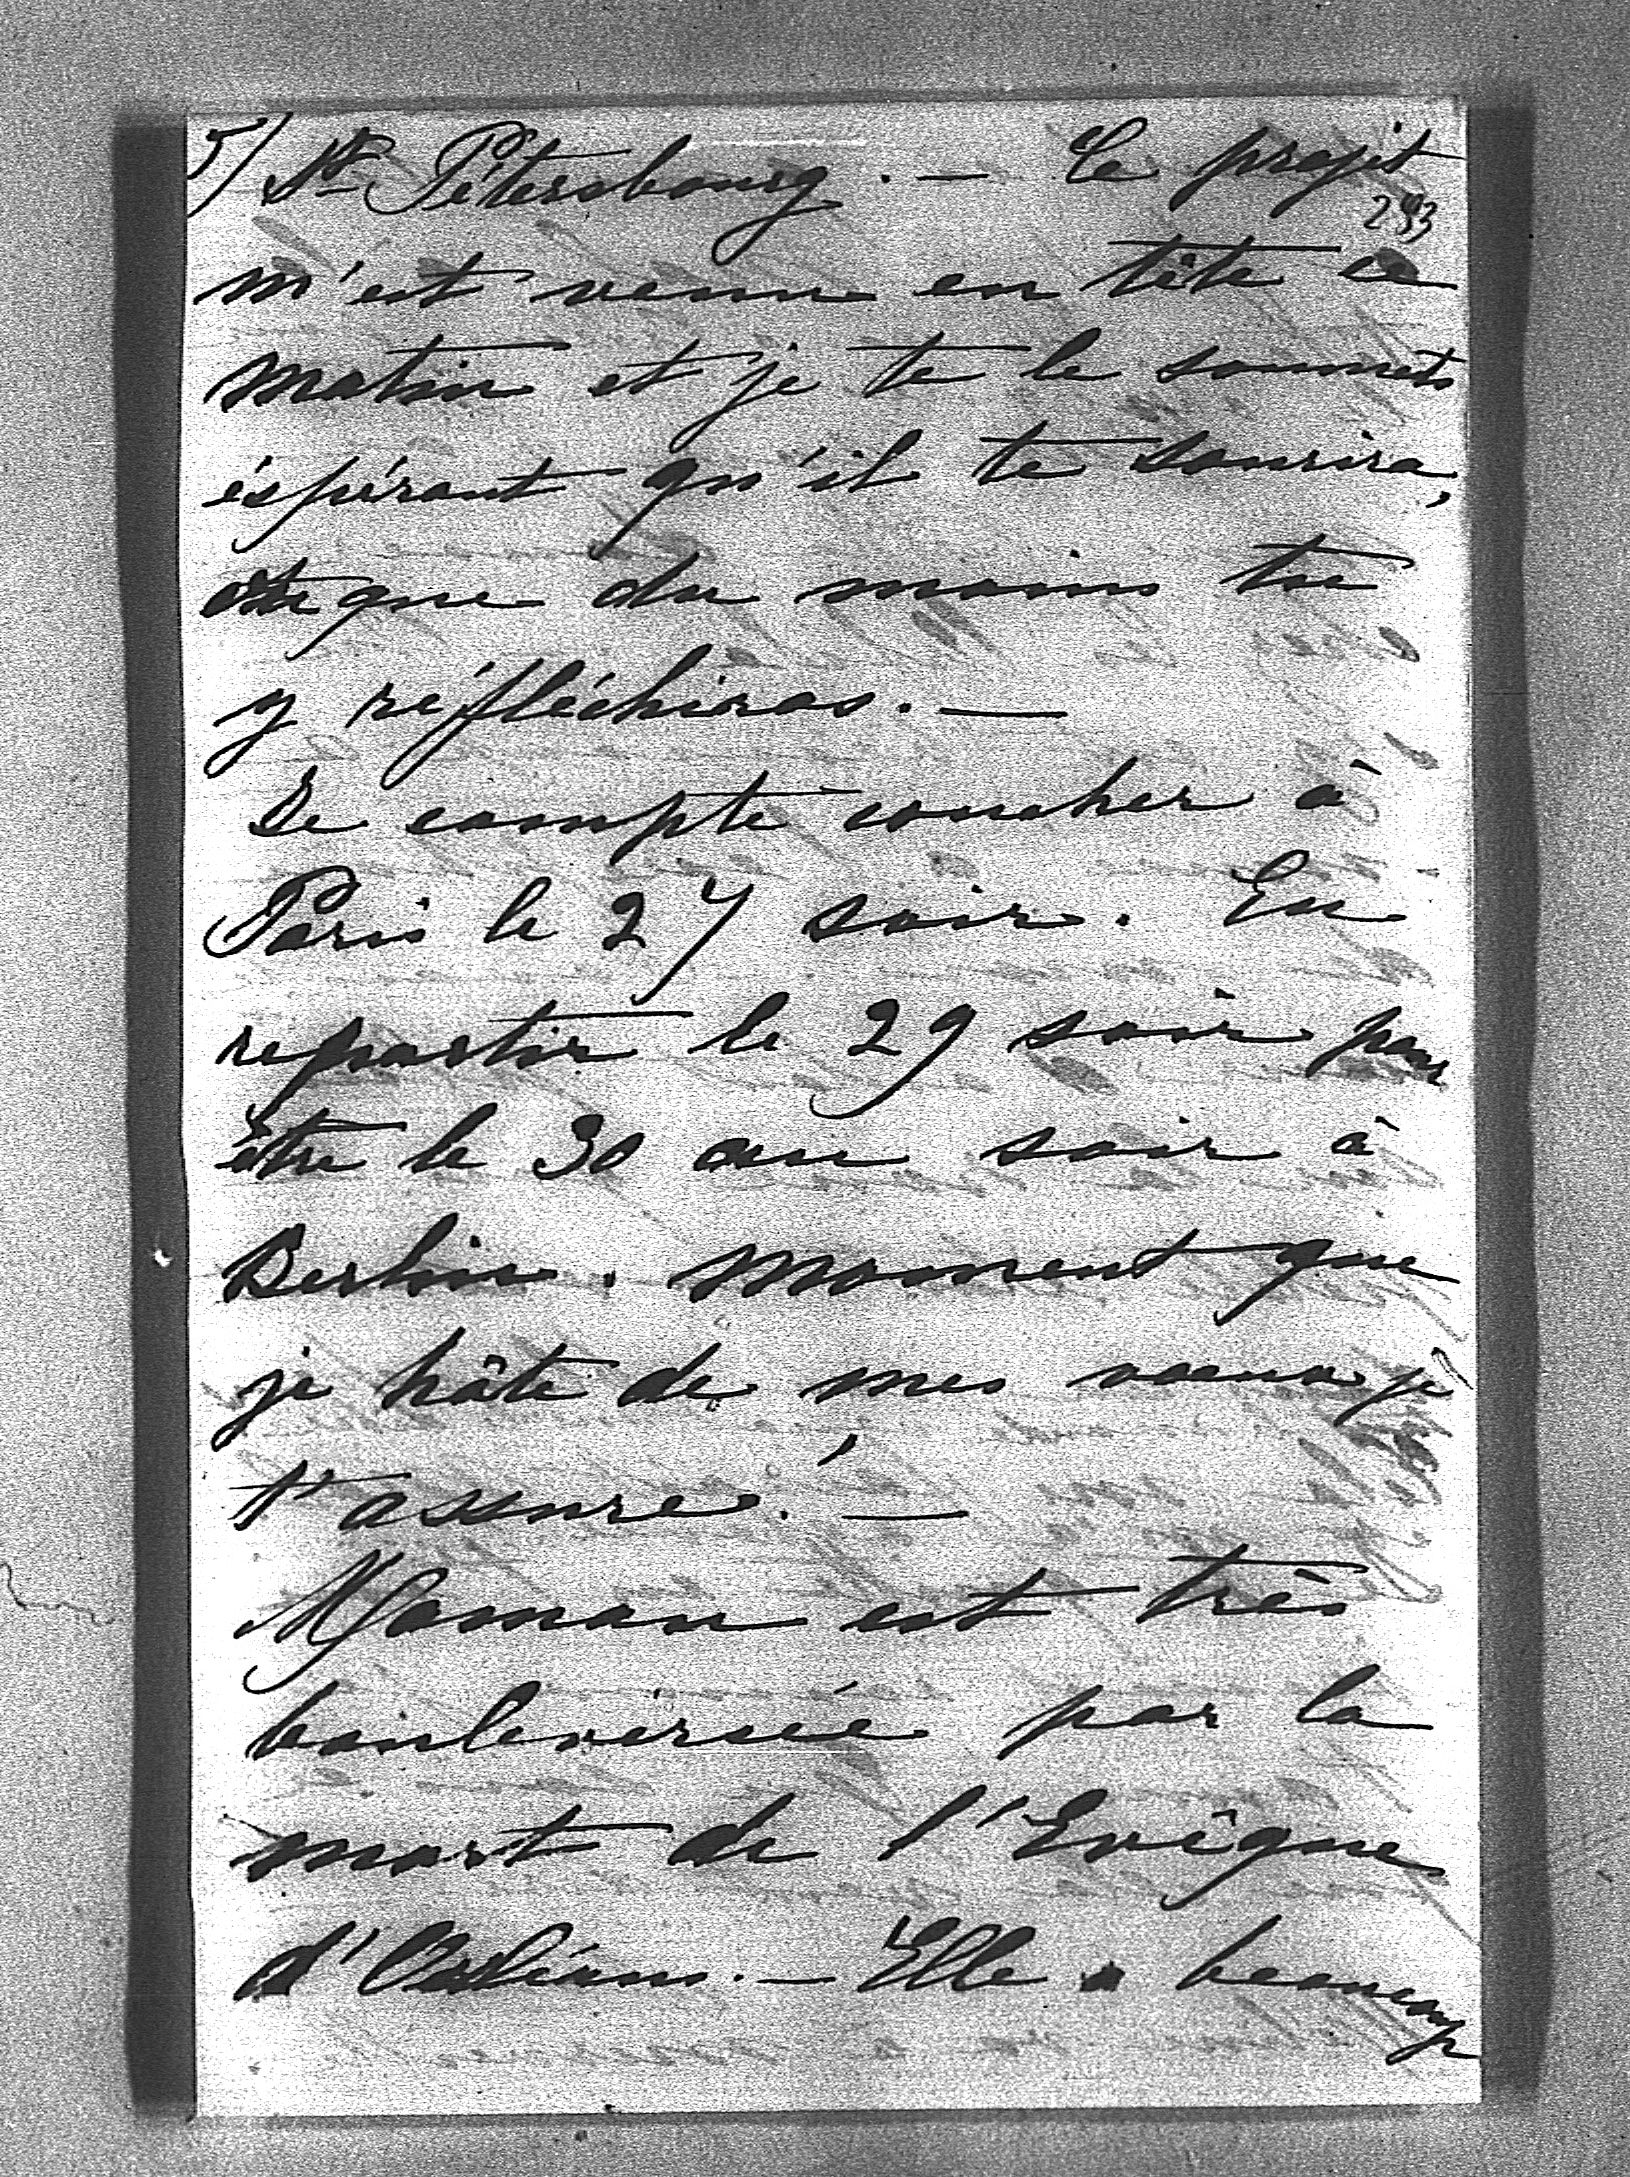 5/ St Pétersbourg. — Ce projet
293
m'est venu en tête ce
matin et je te le soumets
éspérant qu'il te sourira,
que du moins tu
y réfléchiras. —
Je compte coucher à
Paris le 27 soir. En
repartir le 29 soir pour
être le 30 au soir à
Berlin. Moment que
je hâte de mes vœux je
t'assure! —
Maman est très
bouleversée par la
mort de l'Evêque
d'Orléans. — Elle a beaucoup